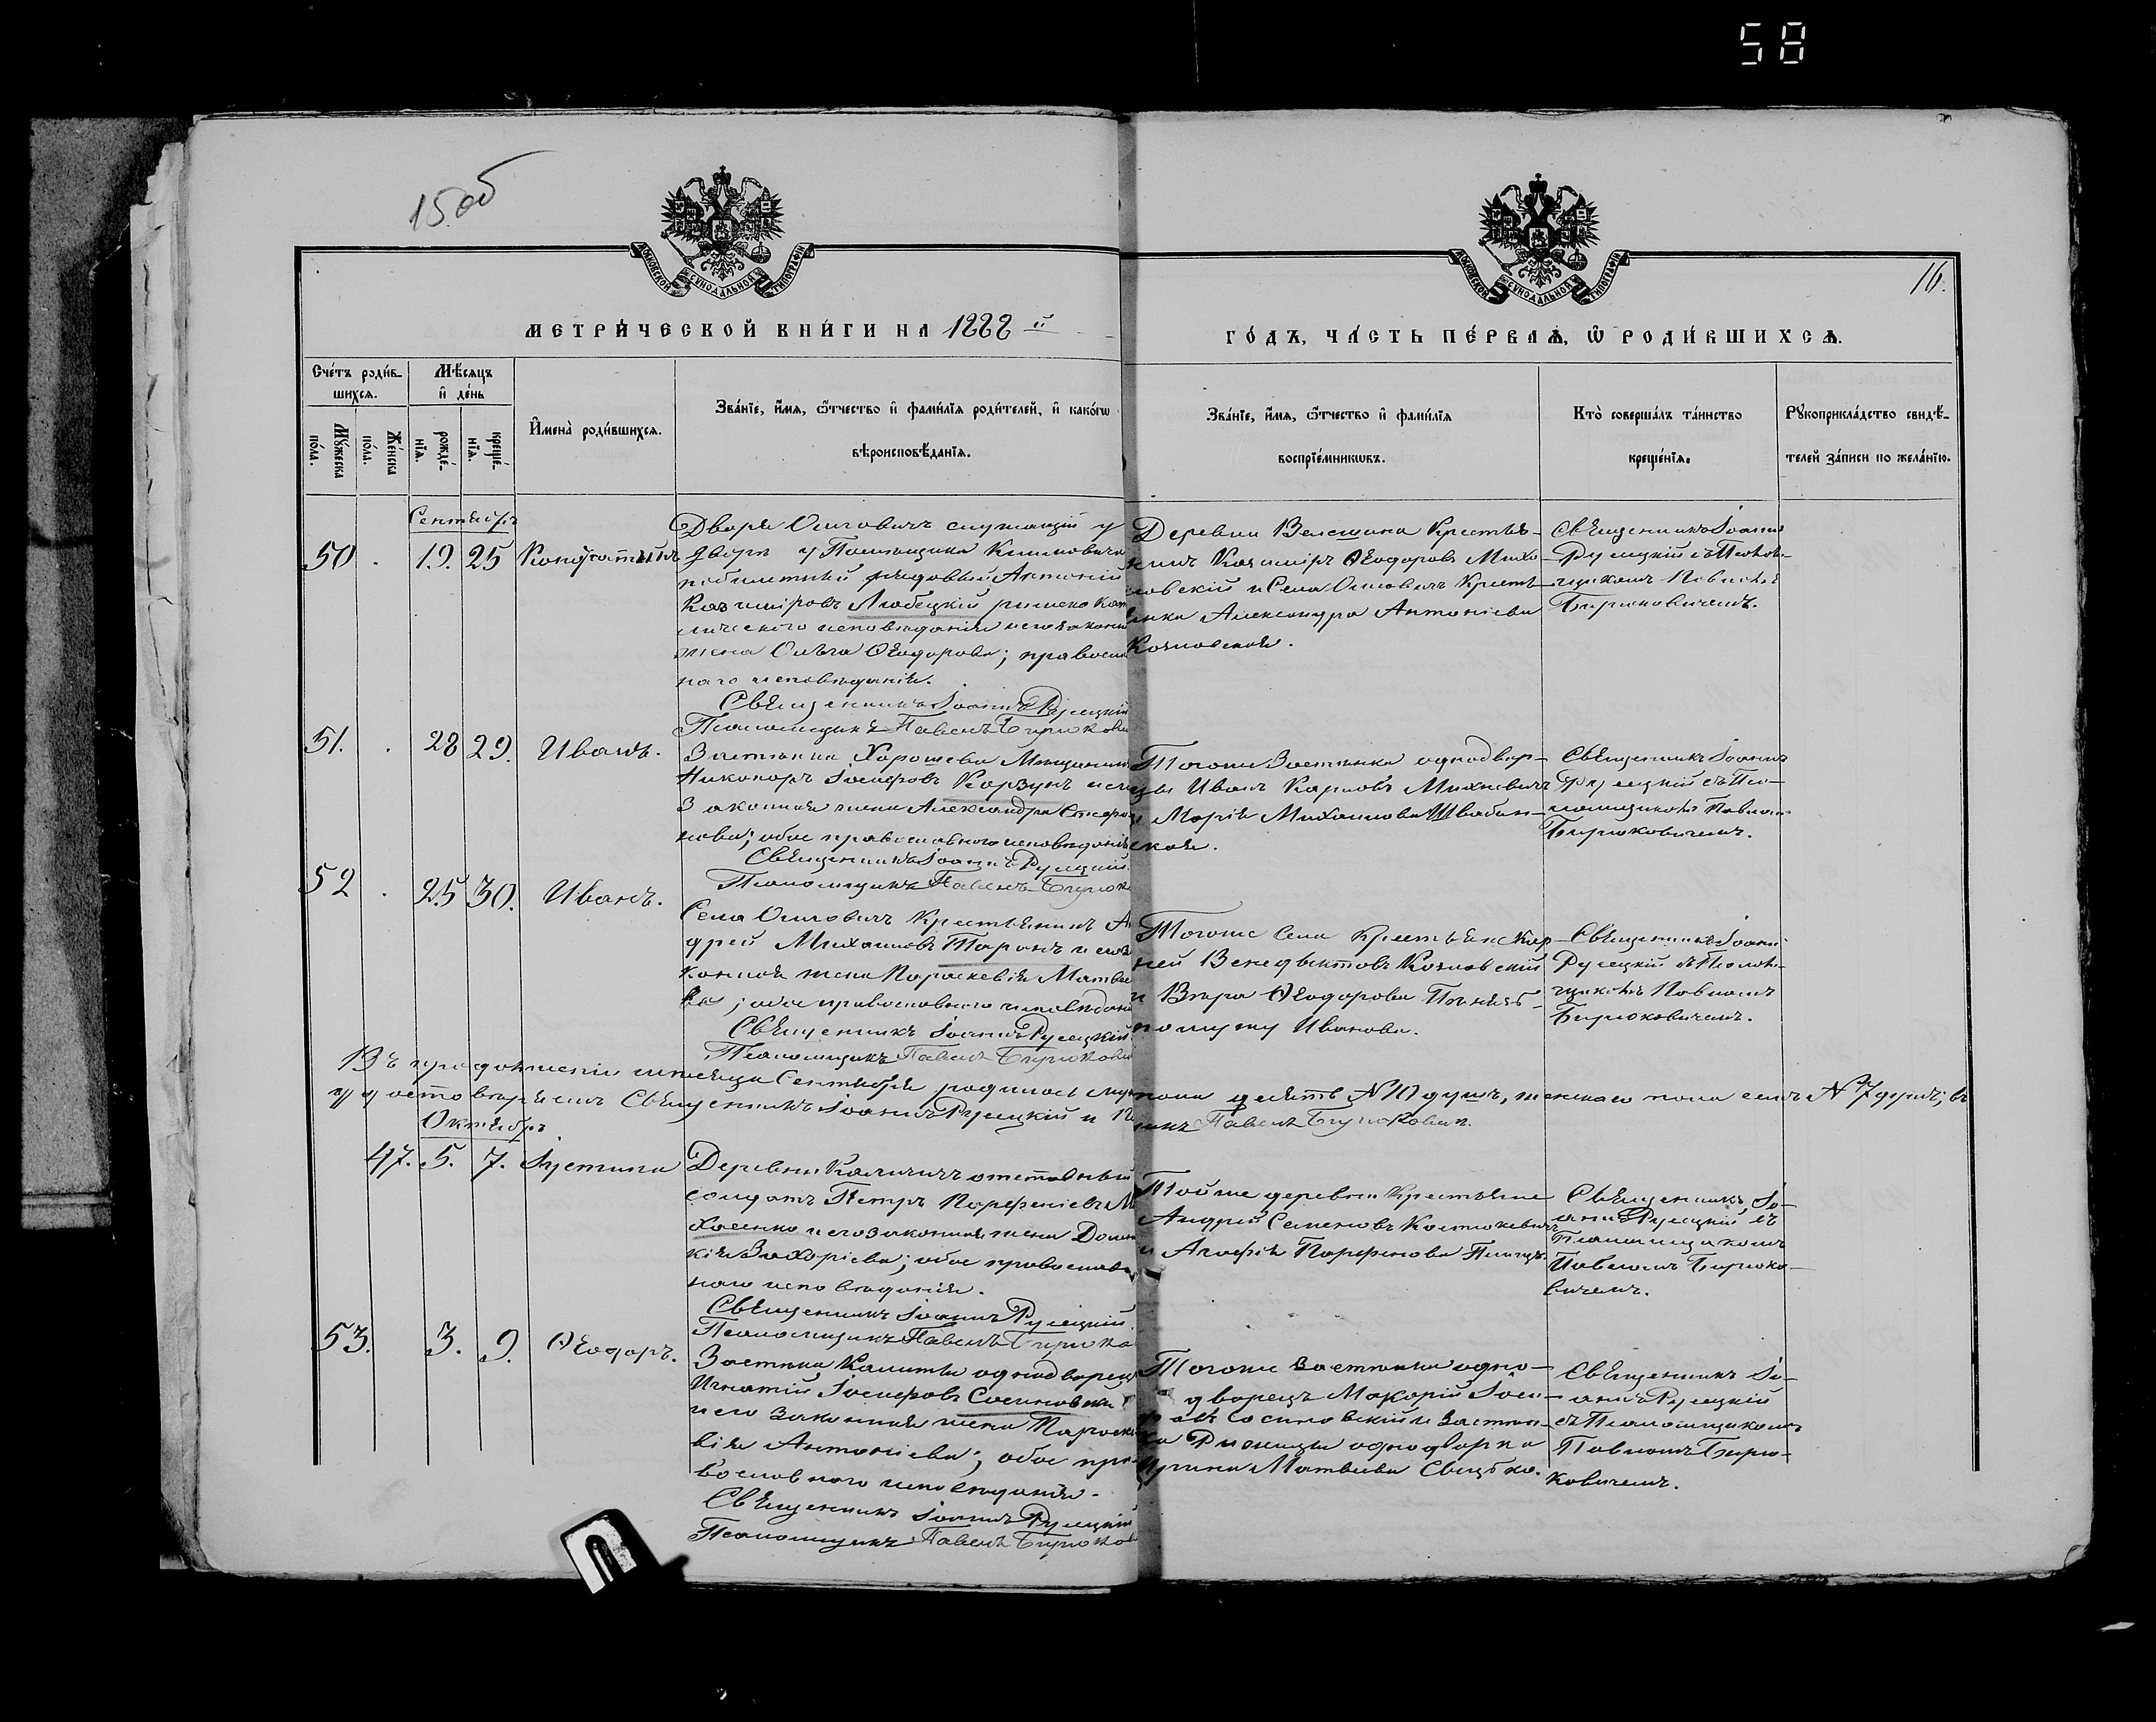 58
15 об
16.
МОСКОВСКОЙ СѴНОДАЛЬНОЙ ТИПОГРАФІИ
МОСКОВСКОЙ СѴНОДАЛЬНОЙ ТИПОГРАФІИ
МЕТРИ́ЧЕСКОЙ КНИ́ГИ НА 1888 й
ГО́ДЪ, ЧА́СТЬ ПЕ́РВАѦ, Ѡ҆ РОДИ́ВШИХСѦ.
Сче́тъ роди́в-
шихсѧ.
Мꙋ́жеска
по́ла.
Же́нска
по́ла.
Мѣ́сѧцъ
и҆ де́нь
рожде́-
нїѧ.
креще́-
нїѧ.
И҆мена̀ роди́вшихсѧ.
Зва́нїе, и҆́мѧ, ѻ҆́тчество и҆ фами́лїѧ роди́телей, и҆ како́гѡ
вѣроисповѣ́данїѧ.
Зва́нїе, и҆́мѧ, ѻ҆́тчество и҆ фами́лїѧ
воспрїе́мникѡвъ.
Кто̀ соверша́лъ та́инство
креще́нїѧ.
Рꙋкоприкла́дство свидѣ́-
телей за́писи по жела́нїю.
Сентябрь
50 . 19. 25
Двора Осиповичъ служащій у
двора у Помѣщика
рядовый Антоній
Казиміровъ Любецкій римско кат
лическаго исповѣданія и его законн
жена Ольга Ѳеодорова; правосл
наго исповѣданія.
Священникъ Іоаннъ
Псаломщикъ Павелъ Бирюкови
Деревни Крестья-
нинъ Казиміръ Ѳеодоровъ
и Села Осиповичъ Кресть
янка Александра Антоніева
Козловская.
Священникъ Іоаннъ
съ Псалом-
щикомъ Павломъ
Бирюковичемъ.
51. . 28 29. Иванъ.
Застѣнка Мѣщанинъ
Никаноръ Іосифовъ Корзунъ и его
Законная жена Александра Стефа
нова; обое православнаго исповѣданія
Священникъ Іоаннъ
Псаломщикъ Павелъ Бирюк
Тогоже Застѣнка однодвор-
цы Иванъ Карловъ Михневичъ
и Марія Михаилова Швабин-
ская.
Священникъ Іоаннъ
съ Пса-
ломщикомъ Павломъ
Бирюковичемъ.
52 . 25 30. Иванъ.
Села Осиповичъ Крестьянинъ Ан
дрей Михаиловъ Таранъ и его за
конная жена Параскевія Матвѣе
ва; обое православнаго исповѣданія
Священникъ Іоаннъ
Псаломщикъ Павелъ Бирюкови
Тогоже Села Крестьяне Кор-
ней Венедиктовъ Козловскій
и Вѣра Ѳеодорова
по мужу Иванова.
Священникъ Іоаннъ
съ Псалом-
щикомъ Павломъ
Бирюковичемъ.
Въ продолженіи мѣсяца Сентября родилось муж пола десять №10 душъ, женскаго пола семь №7 душъ; въ
удостовѣряемъ Священникъ Іоаннъ и Пс щикъ Павелъ Бирюковичъ.
Октябрь
47. 5. 7. Іустина
Деревни отставный
солдатъ Петръ Парфеніевъ М
хленко и его законная жена Дом
кія Захаріева; обое православ
наго исповѣданія.
Священникъ Іоаннъ
Псаломщикъ Павелъ Бирюко
Тойже деревни Крестьяне
Андрей Семеновъ Костюкевичъ
и Агафія Парфенова
Священникъ Іо-
аннъ съ
Псаломщикомъ
Павломъ Бирюко-
вичемъ.
53. 3. 9. Ѳеодоръ.
Застѣнка однодворецъ
Игнатій Іосифовъ Сосиновскій
и его законная жена Параске
вія Антоніева; обое пра
вославнаго исповѣданія.
Священникъ Іоаннъ
Псаломщикъ Павелъ Бирюков
Тогоже застѣнка одно-
дворецъ Макарій Іоси-
фовъ Сосиновскій и застѣн-
ка однодворка
Ирина Матвѣева
Священникъ Іо-
аннъ
съ Псаломщикомъ
Павломъ Бирю-
ковичемъ.